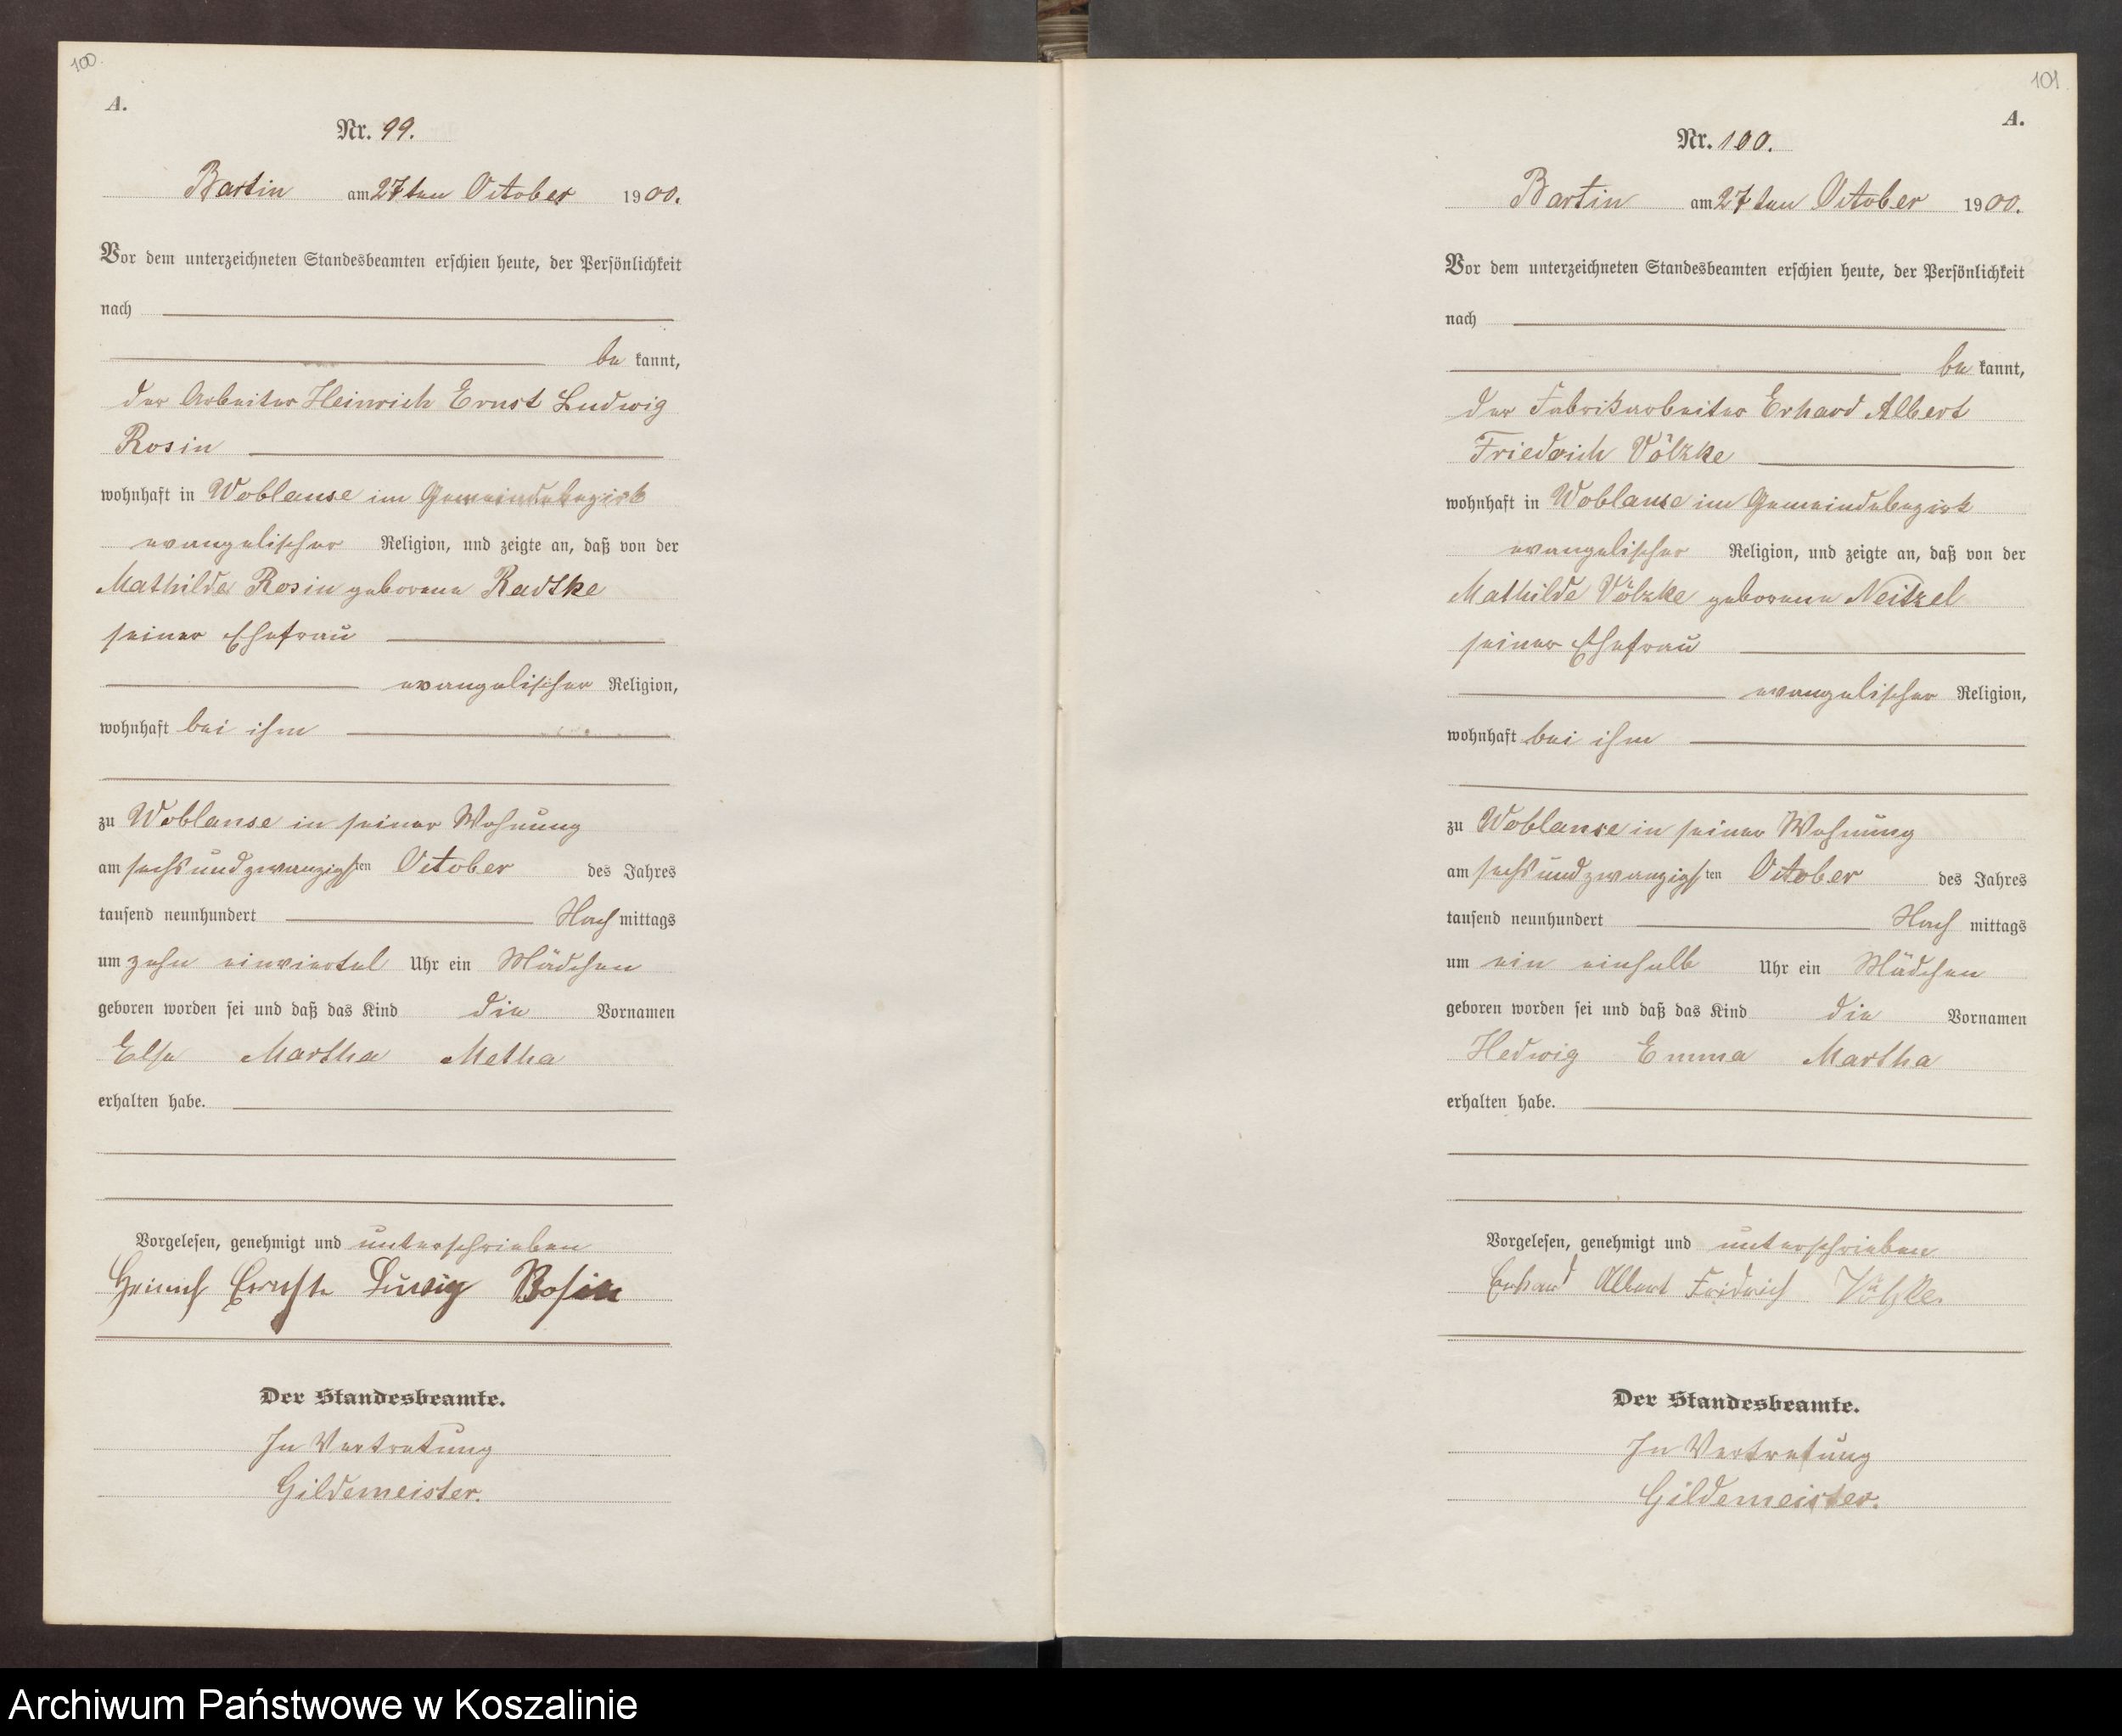 100.
A.
Nr. 99.
Bartin am 27ten October 1900.
Vor dem unterzeichneten Standesbeamten erschien heute, der Persönlichkeit
nach
be kannt,
der Arbeiter Heinrich Ernst Ludwig
Rosin
wohnhaft in Woblanse im Gemeindebezirk
evangelischer Religion, und zeigte an, daß von der
Mathilde Rosin geborene Radtke
seiner Ehefrau
evangelischer Religion,
wohnhaft bei ihm
zu Woblanse in seiner Wohnung
am sechsundzwanzigsten October des Jahres
tausend neunhundert Nach mittags
um zehn einviertel Uhr ein Mädchen
geboren worden sei und daß das Kind die Vornamen
Else Martha Metha
erhalten habe.
Vorgelesen, genehmigt und unterschrieben
Heinrich Ernste Luwig Rosin
Der Standesbeamte.
In Vertretung
Gildemeister.
101.
A.
Nr. 100.
Bartin am 27ten October 1900.
Vor dem unterzeichneten Standesbeamten erschien heute, der Persönlichkeit
nach
be kannt,
der Fabrikarbeiter Erhard Albert
Friedrich Völzke
wohnhaft in Woblanse im Gemeindebezirk
evangelischer Religion, und zeigte an, daß von der
Mathilde Völzke geborene Neitzel
seiner Ehefrau
evangelischer Religion,
wohnhaft bei ihm
zu Woblanse in seiner Wohnung
am sechsundzwanzigsten October des Jahres
tausend neunhundert Nach mittags
um ein einhalb Uhr ein Mädchen
geboren worden sei und daß das Kind die Vornamen
Hedwig Emma Martha
erhalten habe.
Vorgelesen, genehmigt und unterschrieben
Erhard Albert Fridrich Völzke.
Der Standesbeamte.
In Vertretung
Gildemeister.
Archiwum Państwowe w Koszalinie